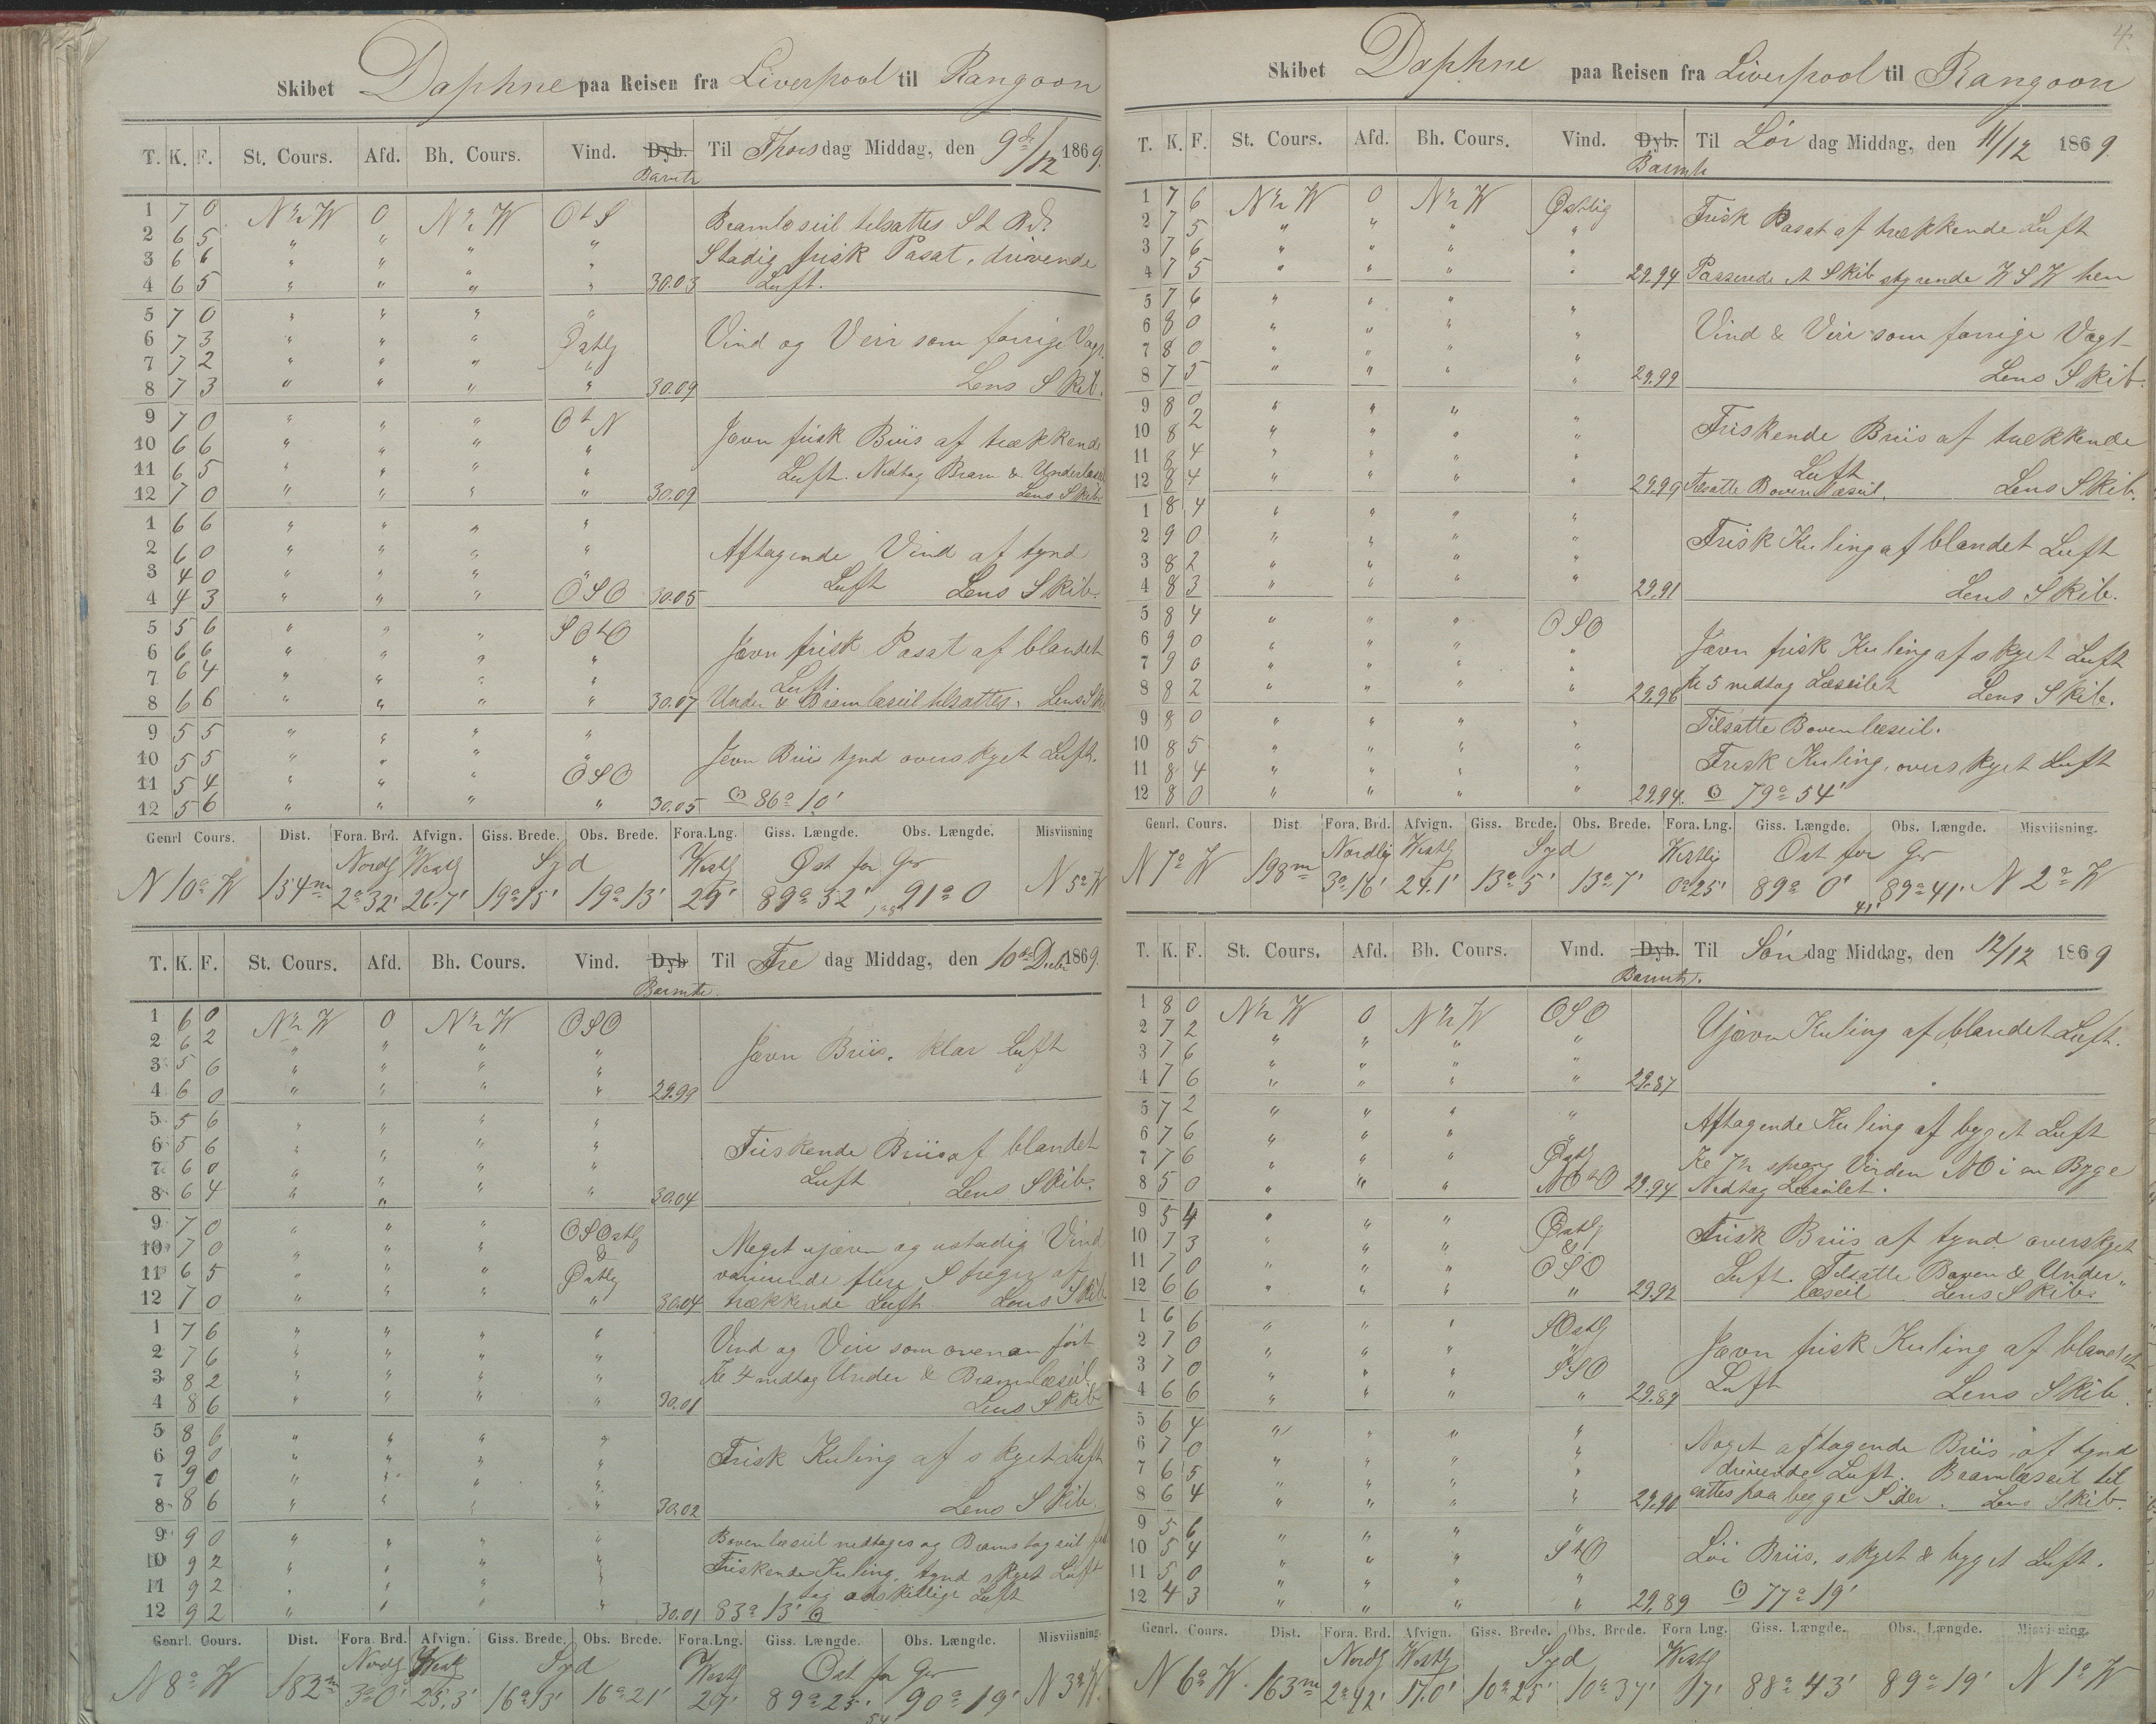 Skibet Daphne paa Reisen fra Liverpool til Rangoon
T. K. F. St. Cours. Afd. Bh. Cours. Vind. Dyb. Til Thorsdag Middag, den 9de/12 1869.
Barmtr
1 7 0 N½W 0 N½W OtS Bramlæseil tilsattes St B.d.
2 6 5 " " " " Stadig frisk Pasat, drivende
3 6 6 " " " "
4 6 5 " " " " 30.03 Luft.
5 7 0 " " " "
6 7 3 " " " Østlg Vind og Veir som forrige Vagt.
7 7 2 " " " "
8 7 3 " " " " 30.09 Lens Skib.
9 7 0 " " " OtN
10 6 6 " " " " Jævn frisk Briis af trækkende
11 6 5 " " " " Luft. Nedtog Bram & Underlæseil
12 7 0 " " " " 30.09 Lens Skib.
1 6 6 " " " "
2 6 0 " " " " Aftagende Vind af tynd
3 4 0 " " " "
4 4 3 " " " OSO 30.05 Luft Lens Skib.
5 5 6 " " " SOtO
6 6 6 " " " " Jævn frisk Pasat af blandet
7 6 4 " " " " Luft
8 6 6 " " " " 30.07 Under & Bramlæseil tilsattes. Lens Skib
9 5 5 " " " "
10 5 5 " " " " Jevn Briis tynd overskyet Luft.
11 5 4 " " " OSO
12 5 6 " " " " 30.05 ☉ 86° 10'
Genrl Cours. Dist. Fora. Brd. Afvign. Giss. Brede. Obs. Brede. Fora. Lng. Giss. Længde. Obs. Længde. Misviisning
Nordlg Westlg Syd Westlg Øst for Gr
N 10° W 154m 2° 32' 26.7' 19° 15' 19° 13' 29' 89° 52' 91° 0 N 5° W
T. K. F. St. Cours. Afd. Bh. Cours. Vind. Dyb Til Fredag Middag, den 10de Decbr 1869.
Barmtr.
1 6 0 N½W 0 N½W OSO
2 6 2 " " " " Jævn Briis, klar Luft
3 5 6 " " " "
4 6 0 " " " " 29.99
5 5 6 " " " "
6 5 6 " " " " Friskende Briis af blandet
7 6 0 " " " "
8 6 4 " " " " 30.04 Luft Lens Skib.
9 7 0 " " " OSOstlg
10 7 0 " " " & Meget ujævn og ustadig Vind
11 6 5 " " " Østlg varierende flere Streger af
12 7 0 " " " " 30.04 trækkende Luft Lens Skib.
1 7 6 " " " " Vind og Veir som ovenan ført
2 7 6 " " " "
3 8 2 " " " " Kl 4 nedtog Under & Bramlæseil
4 8 6 " " " " 30.01 Lens Skib
5 8 6 " " " "
6 9 0 " " " " Frisk Kuling af skyet Luft
7 9 0 " " " "
8 8 6 " " " " 30.02 Lens Skib.
9 9 0 " " " " Bovenlæseil nedtoges og Bramstagseil
10 9 2 " " " " Friskende Kuling, tynd skyet Luft
11 9 2 " " " " adskillige Luft
12 9 2 " " " " 30.01 83° 13' ☉
Genrl. Cours. Dist. Fora. Brd. Afvign. Giss. Brede. Obs. Brede. Fora. Lng. Giss. Længde. Obs. Længde. Misviisning.
Nordlg Westlg Syd Westlg Ost for Gr
N 8° W 182m 3° 0' 25,3' 16° 13' 16° 21' 27' 89° 25' 90° 19' N 3° W.
54'
4.
Skibet Daphne paa Reisen fra Liverpool til Rangoon
T. K. F. St. Cours. Afd. Bh. Cours. Vind. Dyb. Til Lørdag Middag, den 11/12 1869.
Barmtr
1 7 6 N½W 0 N½W Østlig Frisk Pasat af trækkende Luft
2 7 5 " " " "
3 7 6 " " " "
4 7 5 " " " " 29.94 Passerede et Skib styrende WSW hen
5 7 6 " " " "
6 8 0 " " " " Vind & Veir som forrige Vagt
7 8 0 " " " "
8 7 5 " " " " 29.99 Lens Skib.
9 8 0 " " " "
10 8 2 " " " " Friskende Briis af trækkende
11 8 4 " " " " Luft
12 8 4 " " " " 29.99 Tilsatte Bovenlæseil. Lens Skib.
1 8 4 " " " "
2 9 0 " " " " Frisk Kuling af blandet Luft
3 8 2 " " " "
4 8 3 " " " " 29.91 Lens Skib.
5 8 4 " " " OSO
6 9 0 " " " " Jævn frisk Kuling af skyet Luft
7 9 0 " " " "
8 8 2 " " " " 29.96 Kl 5 nedtog Læseilet Lens Skib.
9 8 0 " " " " Tilsatte Bovenlæseil.
10 8 5 " " " "
11 8 4 " " " " Frisk Kuling, overskyet Luft
12 8 0 " " " " 29.94. ☉ 79° 54'
Genrl. Cours. Dist. Fora. Brd. Afvign. Giss. Brede. Obs. Brede. Fora. Lng. Giss. Længde. Obs. Længde. Misviisning.
Nordlig Westlg Syd Westlig Ost for Gr
N 7° W 198m 3° 16' 24.1' 13° 5' 13° 7' 0° 25' 89° 0' 89° 41' N 2° W
41'
T. K. F. St. Cours. Afd. Bh. Cours. Vind. Dyb. Til Søndag Middag, den 12/12 1869
Barmtr.
1 8 0 N½W 0 N½W OSO
2 7 2 " " " " Ujævn Kuling af blandet Luft.
3 7 6 " " " "
4 7 6 " " " " 29.87
5 7 2 " " " "
6 7 6 " " " " Aftagende Kuling af byget Luft
7 7 6 " " " Østlg Kl 7½ sprang Vinden NO i en Byge
8 5 0 " " " NOtO 29.94 Nedtog Læseilet.
9 5 4 " " " Østlg
10 7 3 " " " & Frisk Briis af tynd overskyet
11 7 0 " " " OSO Luft. Tilsatte Boven & Under„
12 6 6 " " " " 29.92 læseil Lens Skib.
1 6 6 " " " SOstlg
2 7 0 " " " " Jævn frisk Kuling af blandet
3 7 0 " " " SSO
4 6 6 " " " " 29.89 Luft Lens Skib.
5 6 4 " " " "
6 7 0 " " " " Noget aftagende Briis af tynd
7 6 5 " " " " drivende Luft. Bramlæseil til
8 6 4 " " " " 29.90 sattes paa begge Sider. Lens Skib.
9 5 6 " " " "
10 5 4 " " " StO Löi Briis, skyet & byget Luft.
11 5 0 " " " "
12 4 3 " " " " 29.89 ☉ 77° 19'
Genrl. Cours. Dist. Fora. Brd. Afvign. Giss. Brede. Obs. Brede. Fora Lng. Giss. Længde. Obs. Længde. Misviisning.
Nordlg Westlg Syd Westlg
N 6° W. 163m 2° 42' 17.0' 10° 25' 10° 37' 17' 88° 43' 89° 19' N 1° W